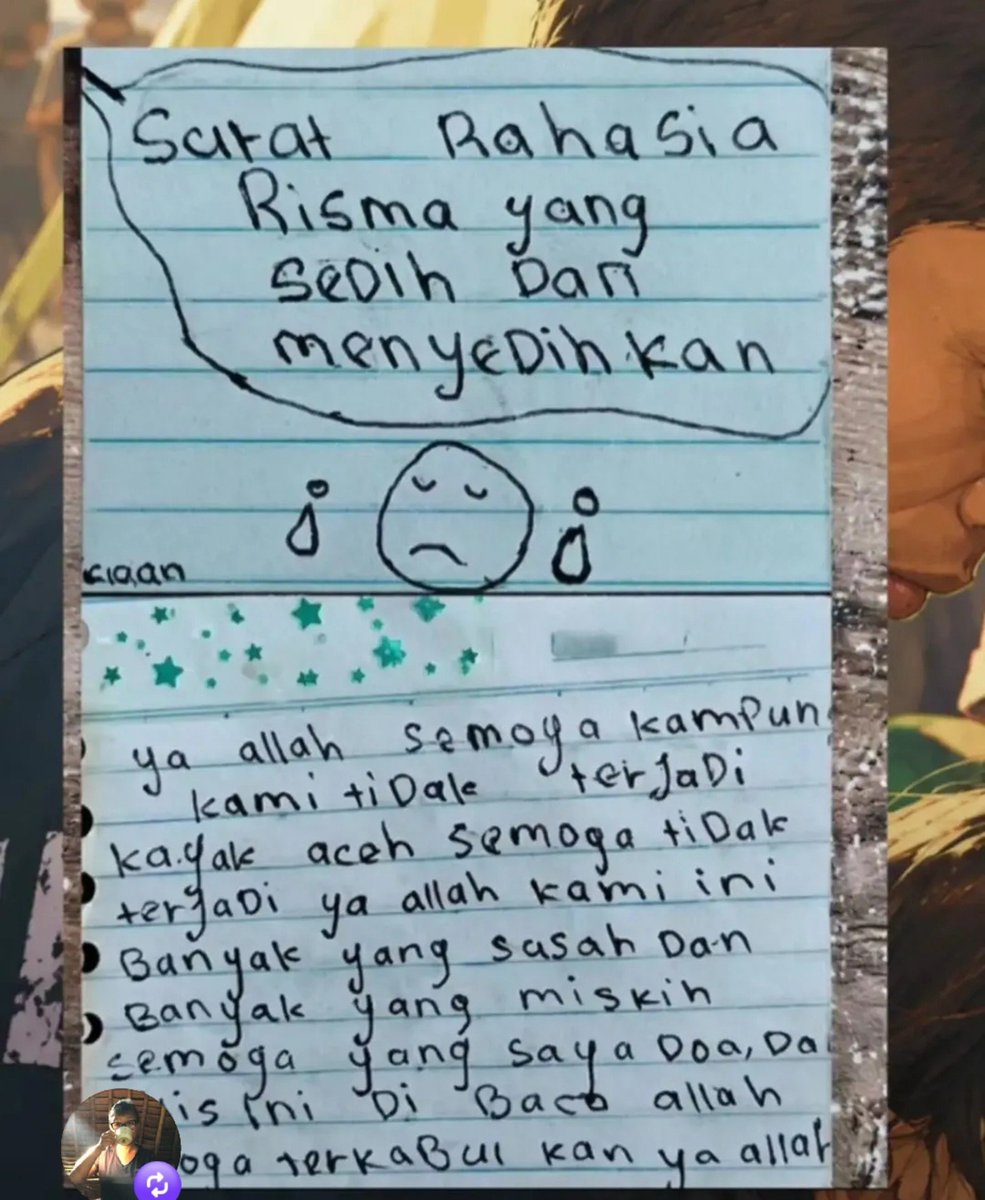 Surat Rahasia
Risma yang
SeDih Dan
menyeDihkan
ya allah semoya kampun
kami tiDak terJaDi
kayak aceh semoga tiDak
terJaDi ya allah kami ini
Banyak yang sasah Dan
Banyak yang miskin
semoga yang saya Doa, Da
is ini Di Baca allah
oga terkaBul kan ya allah